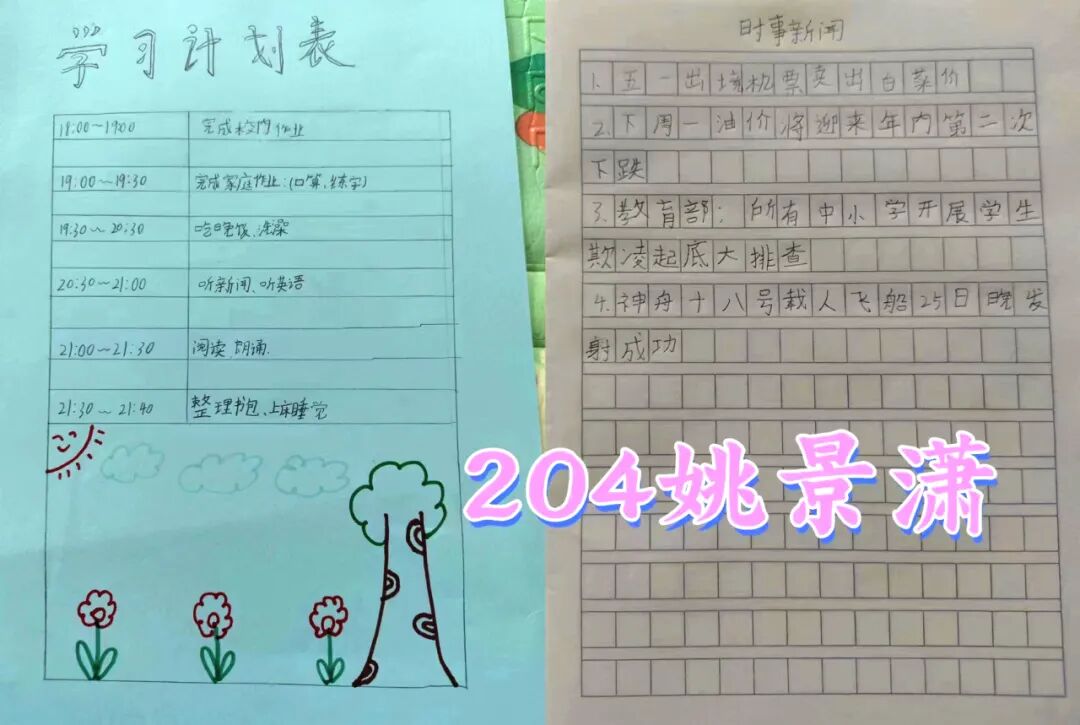 学习计划表
18:00~19:00 完成校内作业
19:00~19:30 完成家庭作业:(口算、练字)
19:30~20:30 吃晚饭、洗澡
20:30~21:00 听新闻、听英语
21:00~21:30 阅读、朗诵.
21:30~21:40 整理书包、上床睡觉
时事新闻
1.五一出境机票卖出白菜价
2.下周一油价将迎来年内第二次
下跌
3.教育部:所有中小学开展学生
欺凌起底大排查
4.神舟十八号载人飞船25日晚发
射成功
204姚景潇